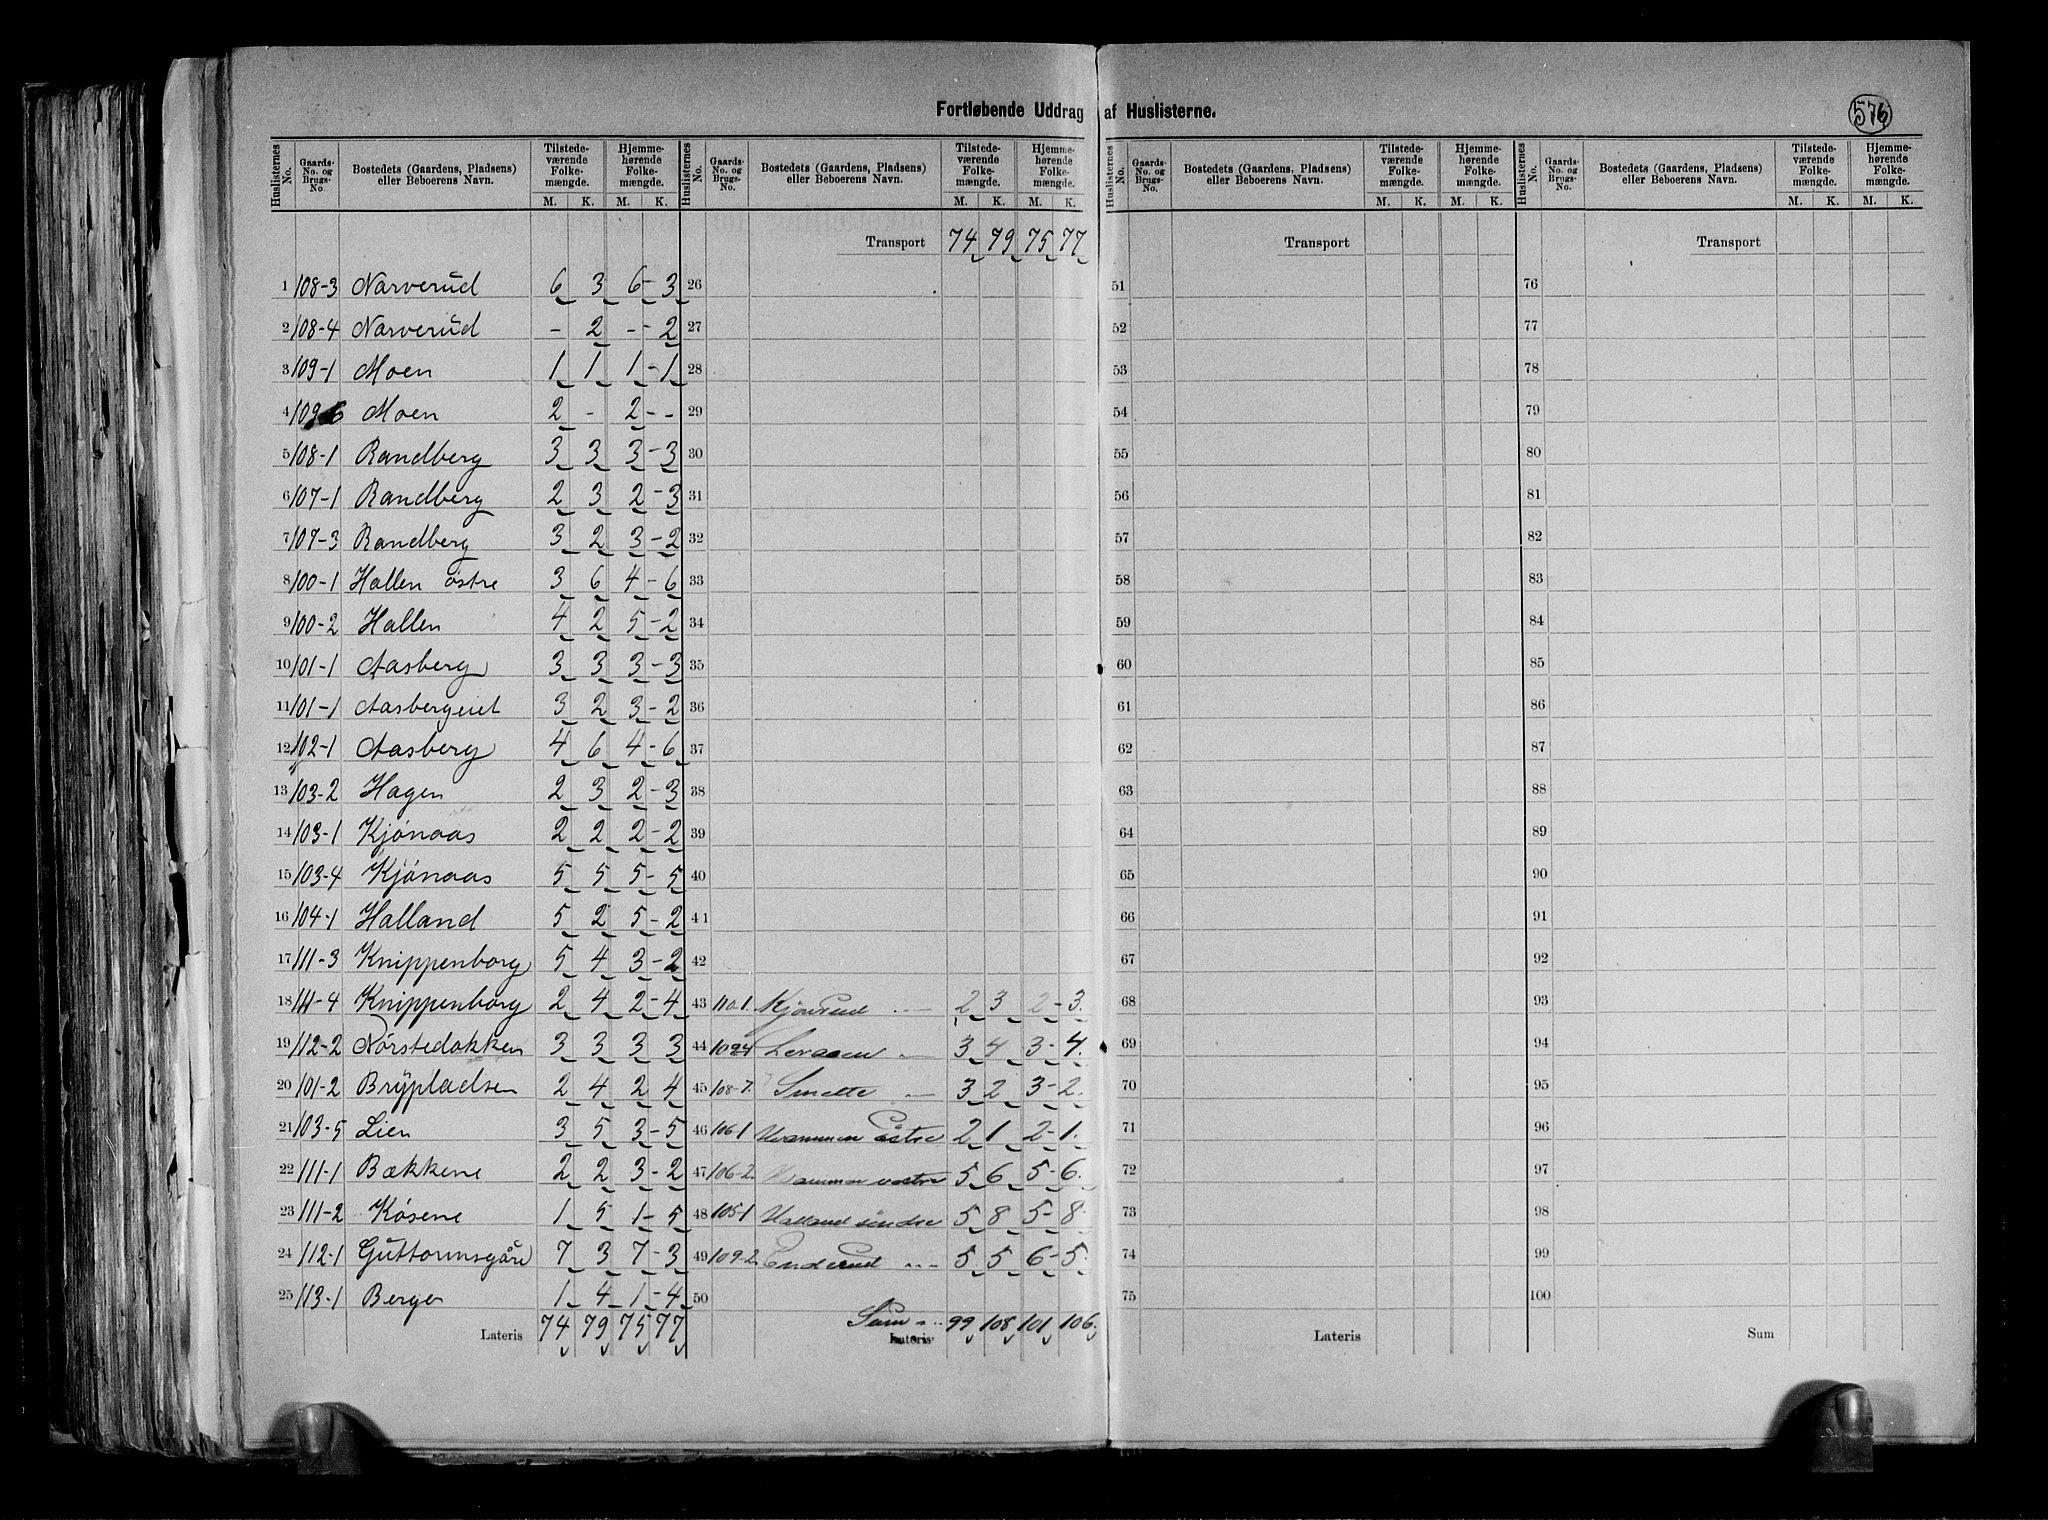 Fortløbende Uddrag af Huslisterne.
576
Huslisternes No. Gaards-No. og Brugs-No. Bostedets (Gaardens, Pladsens) eller Beboerens Navn. Tilstedeværende Folkemængde. M. K. Hjemmehørende Folkemængde. M. K.
Huslisternes No. Gaards-No. og Brugs-No. Bostedets (Gaardens, Pladsens) eller Beboerens Navn. Tilstedeværende Folkemængde. M. K. Hjemmehørende Folkemængde. M. K.
Huslisternes No. Gaards-No. og Brugs-No. Bostedets (Gaardens, Pladsens) eller Beboerens Navn. Tilstedeværende Folkemængde. M. K. Hjemmehørende Folkemængde. M. K.
Huslisternes No. Gaards-No. og Brugs-No. Bostedets (Gaardens, Pladsens) eller Beboerens Navn. Tilstedeværende Folkemængde. M. K. Hjemmehørende Folkemængde. M. K.
1 108-3 Narverud 6 3 6-3
2 108-4 Narverud - 2 -- 2
3 109-1 Moen 1 1 1-1
4 109 6 Moen 2 - 2--
5 108-1 Randberg 3 3 3-3
6 107-1 Randberg 2 3 2-3
7 107-3 Randberg 3 2 3-2
8 100-1 Hallen östre 3 6 4-6
9 100-2 Hallen 4 2 5-2
10 101-1 Aasberg 3 3 3-3
11 101-1 Aasbergeiet 3 2 3-2
12 102-1 Aasberg 4 6 4-6
13 103-2 Hagen 2 3 2-3
14 103-1 Kjónaas 2 2 2-2
15 103-4 Kjónaas 5 5 5-5
16 104-1 Halland 5 2 5-2
17 111-3 Knippenborg 5 4 3-2
18 111-4 Knippenborg 2 4 2-4
19 112-2 Nörstedokken 3 3 3 3
20 101-2 Brypladsen 2 4 2 4
21 103-5 Lien 3 5 3-5
22 111-1 Bækkene 2 2 3-2
23 111-2 Kósene 1 5 1-5
24 112-1 Guttormsgåre 7 3 7-3
25 113-1 Berge 1 4 1-4
Lateris 74 79 75 77
Transport 74 79 75 77
26
27
28
29
30
31
32
33
34
35
36
37
38
39
40
41
42
43 110-1 2 3 2-3.
44 3 4 3-4.
45 108-7. Smette 3 2 3-2.
46 106-1 östre 2 1 2-1.
47 106-2. 5 6 5-6.
48 105-1 Halland söndre 5 8 5-8
49 109-2. Enderud 5 5 6-5.
50
Sum 99 108 101 106
Lateris
Transport
51
52
53
54
55
56
57
58
59
60
61
62
63
64
65
66
67
68
69
70
71
72
73
74
75
Lateris
Transport
76
77
78
79
80
81
82
83
84
85
86
87
88
89
90
91
92
93
94
95
96
97
98
99
100
Sum